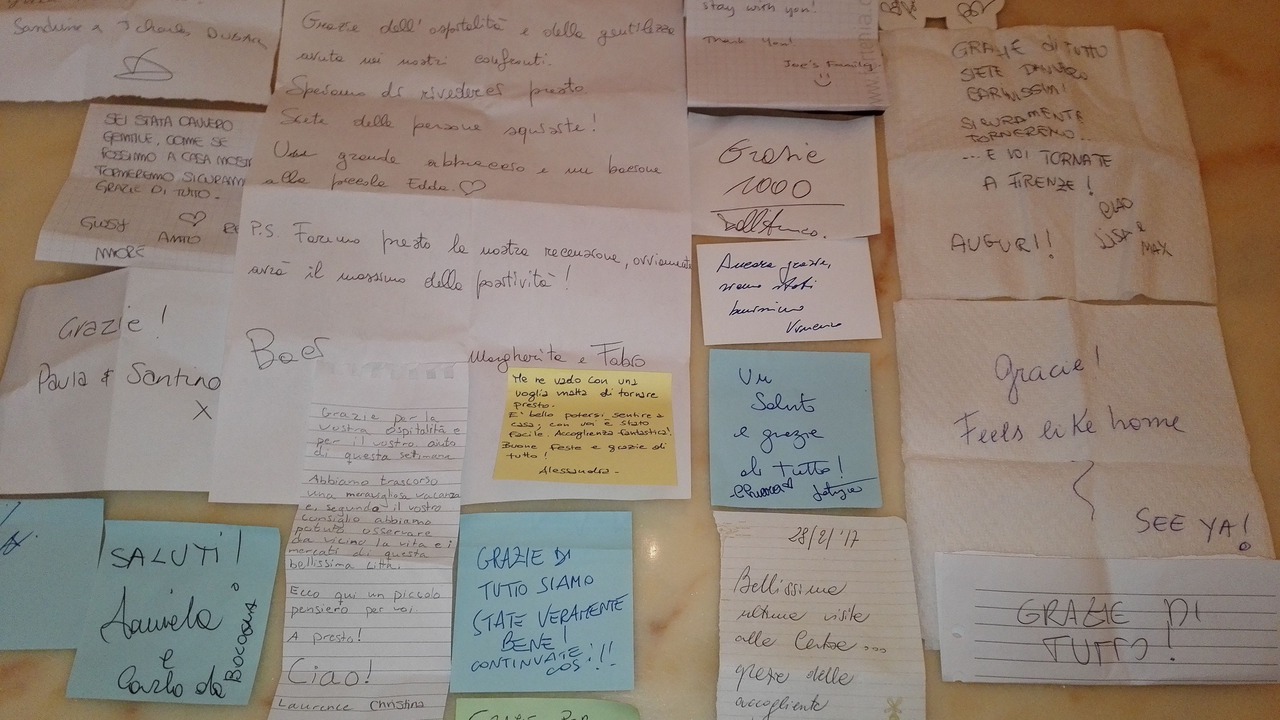 Sandrine & Charles
SEI STATA DAVVERO
GENTILE, COME SE
FOSSIMO A CASA NOSTR
TORNEREMO SICURAM
GRAZIE DI TUTTO.
GIUSY
Grazie!
Paula & Santino
X
SALUTI!
Daniela
e
Carlo da
Grazie dell'ospitalità e della gentilezza
avuta nei nostri confronti.
Speriamo di rivederci presto
Siete delle persone squisite!
Un grande abbraccio e un bacione
alla piccola Edda.
P.S. Faremo presto la nostra recensione, ovviamente
avrà il massimo della positività!
Margherita e Fabio
Me ne vado con una
voglia matta di tornare
presto.
E' bello potersi sentire a
casa, con voi è stato
facile. Accoglienza fantastica!
Buone feste e grazie di
tutto!
Alessandra -
Grazie per la
vostra ospitalità e
per il vostro aiuto
di questa settimana
Abbiamo trascorso
una meravigliosa vacanza
e, secondo il vostro
consiglio abbiamo
potuto osservare
da vicino la vita e i
mercati di questa
bellissima città.
Ecco qui un piccolo
pensiero per voi.
A presto!
Ciao!
Laurence Christina
GRAZIE DI
TUTTO SIAMO
STATE VERAMENTE
BENE!
CONTINUATE
COSÌ!!!
stay with you!
Thank You!
Joe's Family
Grazie
1000
Ancora grazie,
siamo stati
benissimo
Un
Saluto
e grazie
di tutto!
Chiara Letizia
28/2/'17
Bellissima
ultima visita
alle
della
accogliente
GRAZIE DI TUTTO
SIETE DAVVERO
CARINISSIMI!
SICURAMENTE
TORNEREMO...
... E VOI TORNATE
A FIRENZE!
CIAO
LISA e
MAX
AUGURI!!
Gracie!
Feels like home
SEE YA!
GRAZIE DI
TUTTO!